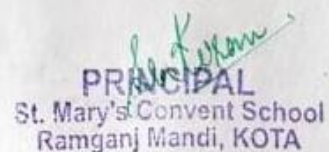 PRINCIPAL
St. Mary's Convent School
Ramganj Mandi, KOTA